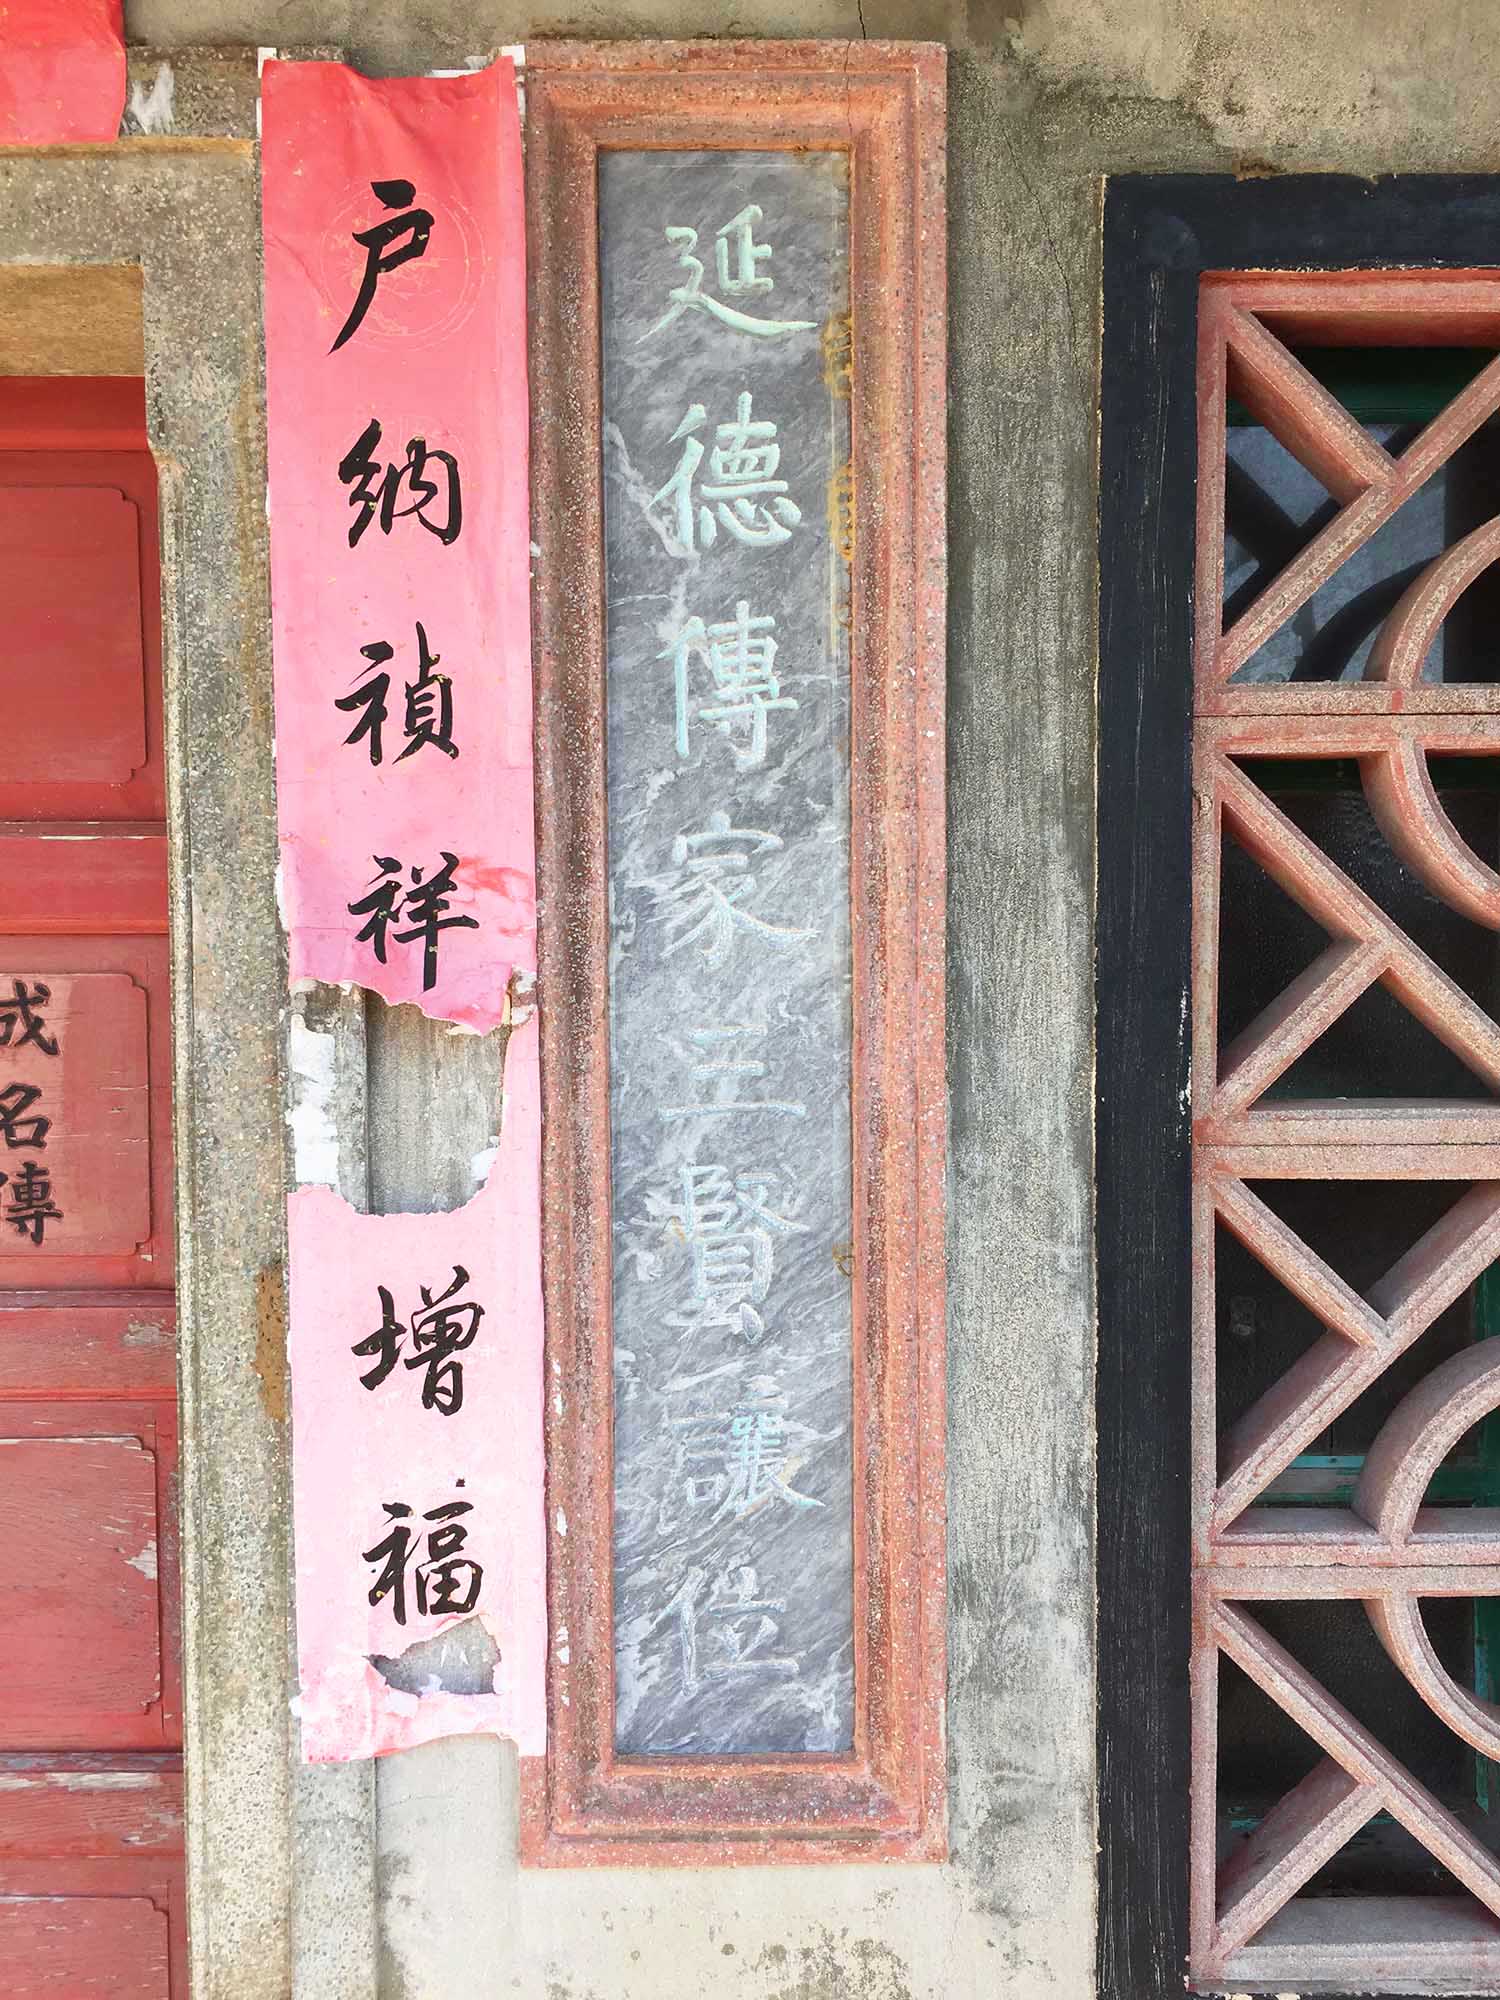 延德傳家三賢讓位
戶納禎祥增福
成名傳